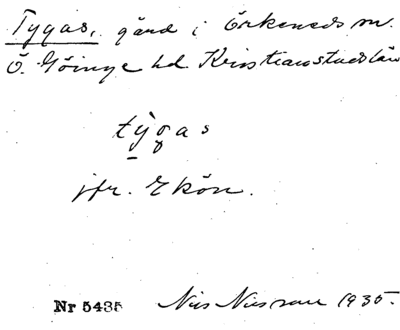 Tygas, gård i Örkeneds sn.
Ö. Göinge hd. Kristianstads län
tỳgas
jfr. Ekön.
Nr 5435 Nils Nilsson 1935.